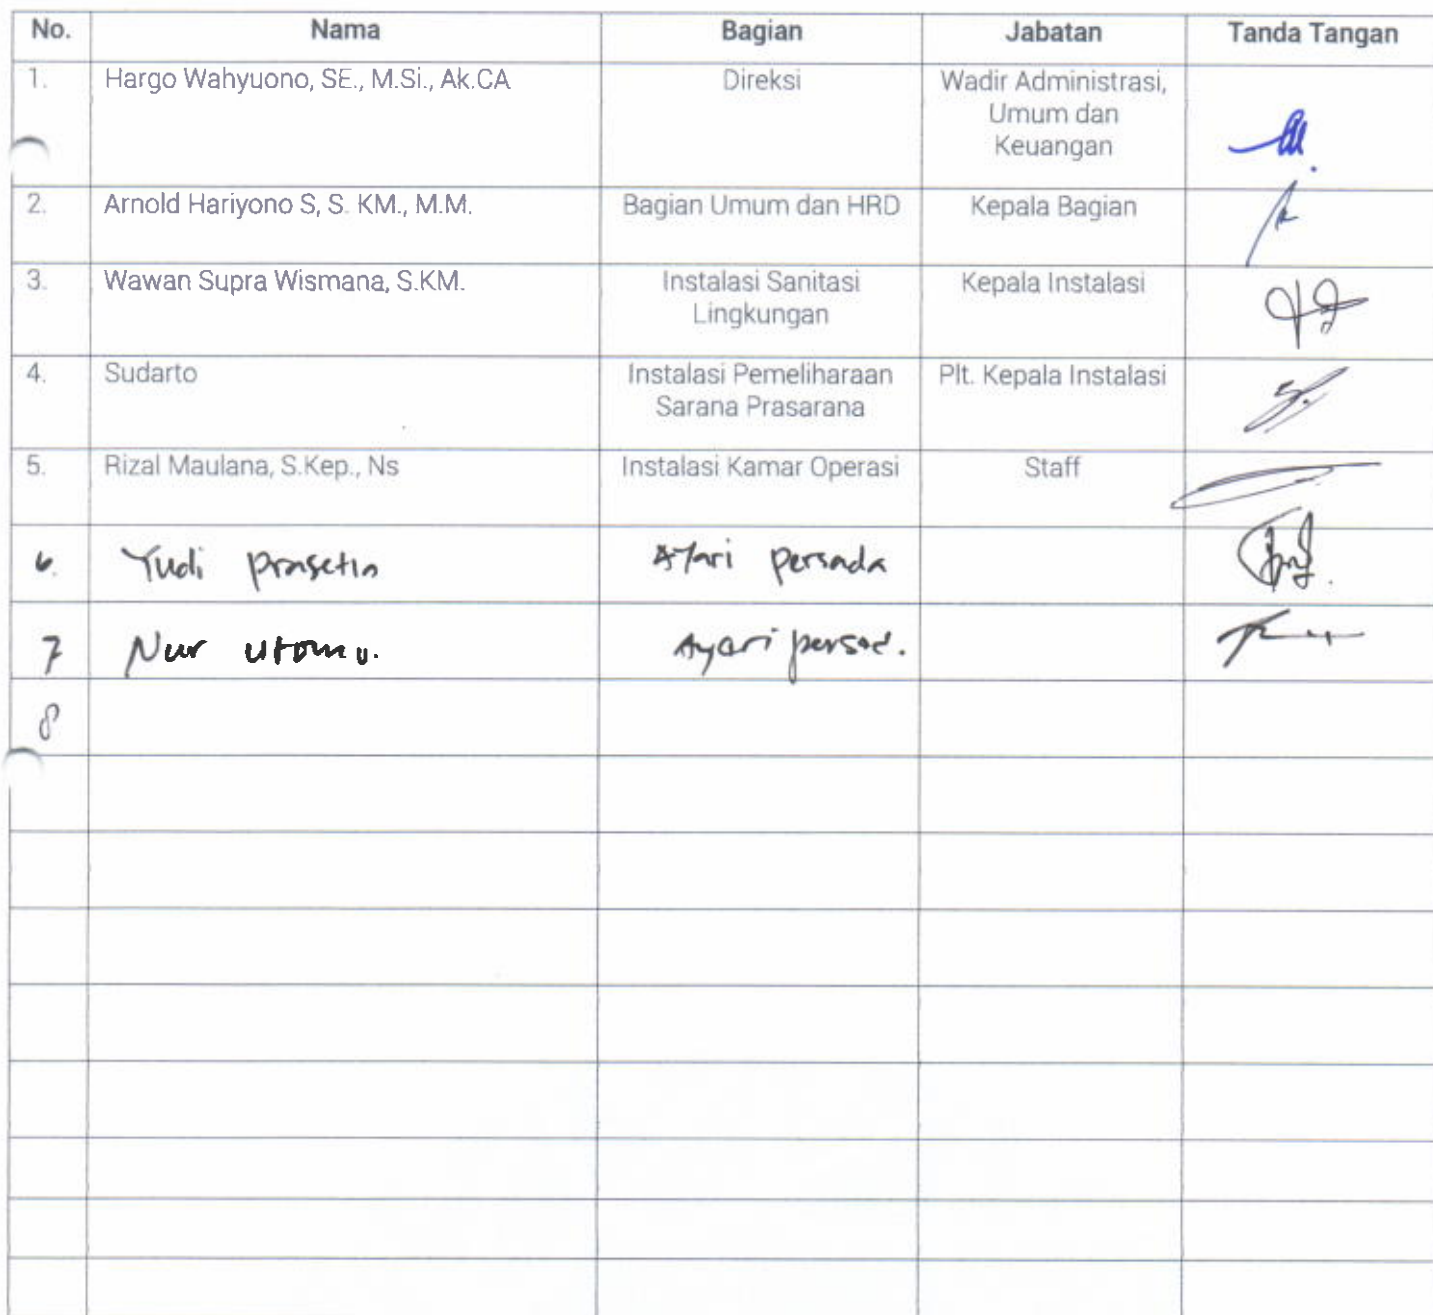 No. Nama Bagian Jabatan Tanda Tangan
1. Hargo Wahyuono, SE., M.Si., Ak.CA Direksi Wadir Administrasi,
Umum dan
Keuangan
2. Arnold Hariyono S, S. KM., M.M. Bagian Umum dan HRD Kepala Bagian
3. Wawan Supra Wismana, S.KM. Instalasi Sanitasi Kepala Instalasi
Lingkungan
4. Sudarto Instalasi Pemeliharaan Plt. Kepala Instalasi
Sarana Prasarana
5. Rizal Maulana, S.Kep., Ns Instalasi Kamar Operasi Staff
6. Yudi Prasetio Ayari persada
7 Nur utomo. Ayari
8